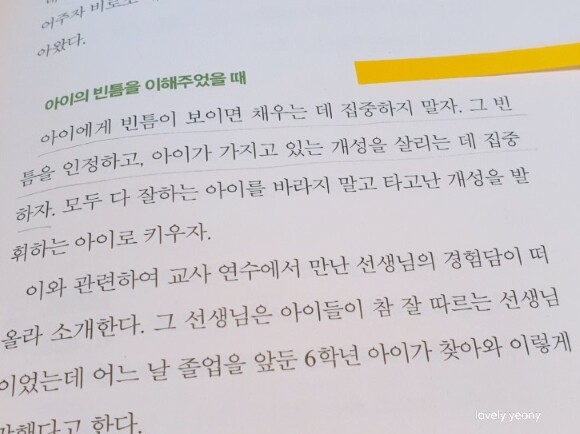 어주자 비로소
아왔다.
아이의 빈틈을 이해주었을 때
아이에게 빈틈이 보이면 채우는 데 집중하지 말자. 그 빈
틈을 인정하고, 아이가 가지고 있는 개성을 살리는 데 집중
하자. 모두 다 잘하는 아이를 바라지 말고 타고난 개성을 발
휘하는 아이로 키우자.
이와 관련하여 교사 연수에서 만난 선생님의 경험담이 떠
올라 소개한다. 그 선생님은 아이들이 참 잘 따르는 선생님
이었는데 어느 날 졸업을 앞둔 6학년 아이가 찾아와 이렇게
말했다고 한다.
lovely yeony